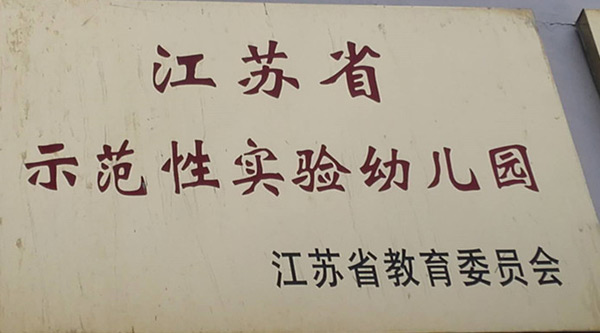 江苏省
示范性实验幼儿园
江苏省教育委员会